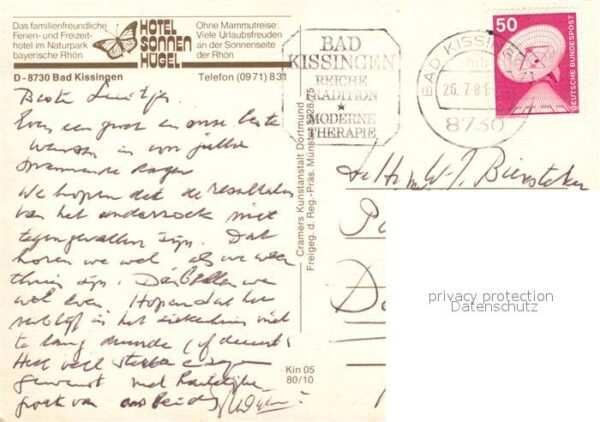 Das familienfreundliche
Ferien- und Freizeit-
hotel im Naturpark
bayerische Rhön
HOTEL
SONNEN
HÜGEL
Ohne Mammutreise:
Viele Urlaubsfreuden
an der Sonnenseite
der Rhön
D - 8730 Bad Kissingen
Telefon (09 71) 8 31
BAD
KISSINGEN
REICHE
TRADITION
★
MODERNE
THERAPIE
BAD KISSINGEN
26.7.81
8730
50
DEUTSCHE BUNDESPOST
Cramers Kunstanstalt Dortmund
Freigeg. d. Reg.-Präs. Münster
Kin 05
80/10
Beste
Even een groet en onze beste
wensen in voor jullie
We hopen dat de resultaten
van het onderzoek niet
tegengevallen zijn. Dat
horen we wel als we weer
thuis zijn. Dan bellen we
wel even. Hopen dat het
verblijf in het ziekenhuis niet
te lang duurde
Heel veel sterkte
gewenst met hartelijke
groet van ons beiden
W. J. Biersteker
privacy protection
Datenschutz